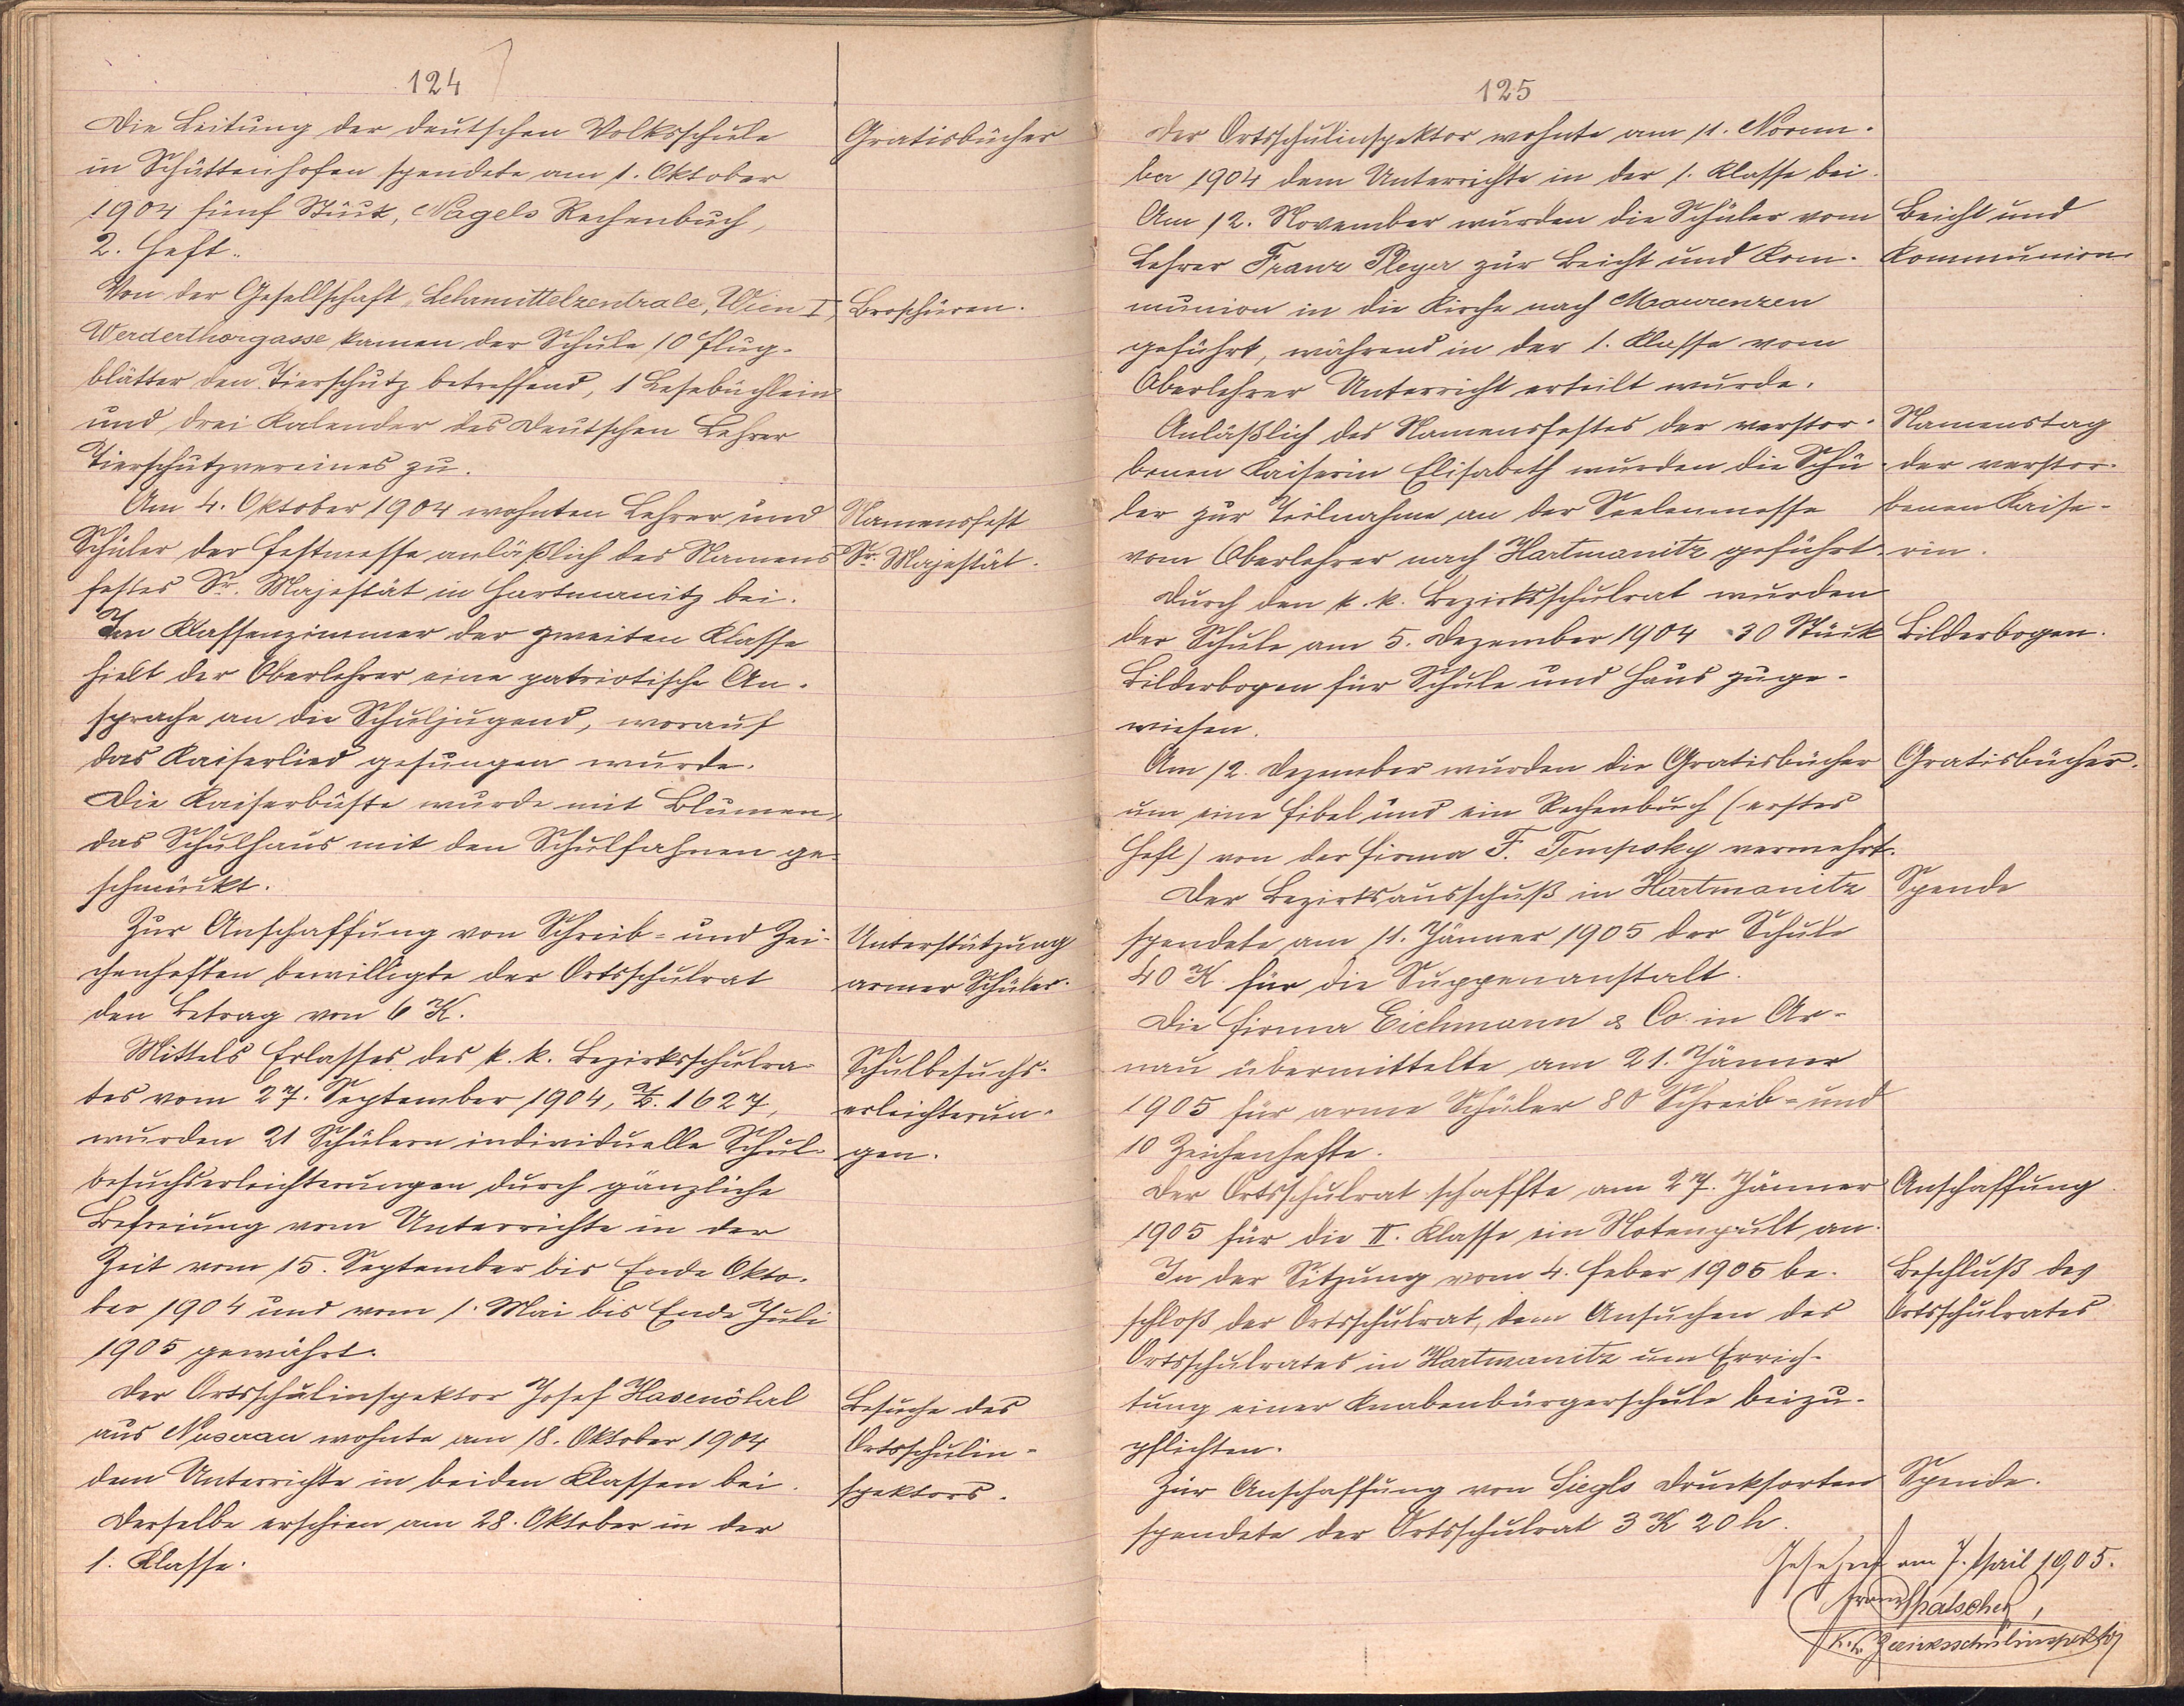 124
Die Leitung der deutschen Volksschule
in Schüttenhofen spendete am 1. Oktober
1904 fünf Stück, Nagels Rechenbuch,
2. Heft.
Gratisbücher
Von der Gesellschaft „Lehrmittelzentrale, Wien I,
Werderthorgasse kamen der Schule 10 Flug-
blätter den Tierschutz betreffend, 1 Lesebüchlein
und drei Kalender des Deutschen Lehrer
Tierschutzvereines zu.
Broschüren.
Am 4. Oktober 1904 wohnten Lehrer und
Schüler der Festmesse anläßlich des Namens
festes Sr. Majestät in Hartmanitz bei.
Im Klassenzimmer der zweiten Klasse
hielt der Oberlehrer eine patriotische An-
sprache an die Schuljugend, worauf
das Kaiserlied gesungen wurde.
Die Kaiserbüste wurde mit Blumen,
das Schulhaus mit den Schulfahnen ge-
schmückt.
Namensfest
Sr. Majestät.
Zur Anschaffung von Schreib- und Zei-
chenheften bewilligte der Ortsschulrat
den Betrag von 6 K.
Unterstützung
armer Schüler.
Mittels Erlasses des k. k. Bezirksschulra-
tes vom 27. September 1904, Z. 1627,
wurden 21 Schülern individuelle Schul-
besuchserleichterungen durch gänzliche
Befreiung vom Unterrichte in der
Zeit vom 15. September bis Ende Okto-
ber 1904 und vom 1. Mai bis Ende Juli
1905 gewährt.
Schulbesuchs-
erleichterun-
gen.
Der Ortsschulinspektor Josef Hasenöhrl
aus Nuserau wohnte am 18. Oktober 1904
dem Unterrichte in beiden Klassen bei.
Derselbe erschien am 28. Oktober in der
1. Klasse.
Besuche des
Ortsschulin-
spektors.
125
Der Ortsschulinspektor wohnte am 11. Novem-
ber 1904 dem Unterrichte in der 1. Klasse bei.
Am 12. November wurden die Schüler vom
Lehrer Franz Pleyer zur Beicht und Kom-
munion in die Kirche nach Maurenzen
geführt, während in der 1. Klasse vom
Oberlehrer Unterricht erteilt wurde.
Beicht und
Kommunion
Anläßlich des Namensfestes der verstor-
benen Kaiserin Elisabeth wurden die Schü-
ler zur Teilnahme an der Seelenmesse
vom Oberlehrer nach Hartmanitz geführt.
Namenstag
der verstor-
benen Kaise-
rin.
Durch den k. k. Bezirksschulrat wurden
der Schule am 5. Dezember 1904 30 Stück
Bilderbogen für Schule und Haus zuge-
wiesen.
Bilderbogen.
Am 12. Dezember wurden die Gratisbücher
um eine Fibel und ein Rechenbuch (erstes
Heft) von der Firma F. Tempsky vermehrt.
Gratisbücher.
Der Bezirksausschuß in Hartmanitz
spendete am 11. Jänner 1905 der Schule
40 K für die Suppenanstalt.
Spende
Die Firma Eichmann & Co. in Ar-
nau übermittelte am 21. Jänner
1905 für arme Schüler 80 Schreib- und
10 Zeichenhefte.
Der Ortsschulrat schaffte am 27. Jänner
1905 für die II. Klasse ein Notenpult an.
Anschaffung
In der Sitzung vom 4. Feber 1905 be-
schloß der Ortsschulrat, dem Ansuchen des
Ortsschulrates in Hartmanitz um Errich-
tung einer Knabenbürgerschule beizu-
pflichten.
Beschluß des
Ortsschulrates
Zur Anschaffung von Siegls Drucksorten
spendete der Ortsschulrat 3 K 20 h.
Spende.
Gesehen am 7. April 1905.
Franz Spatschek,
k. k. Bezirksschulinspektor